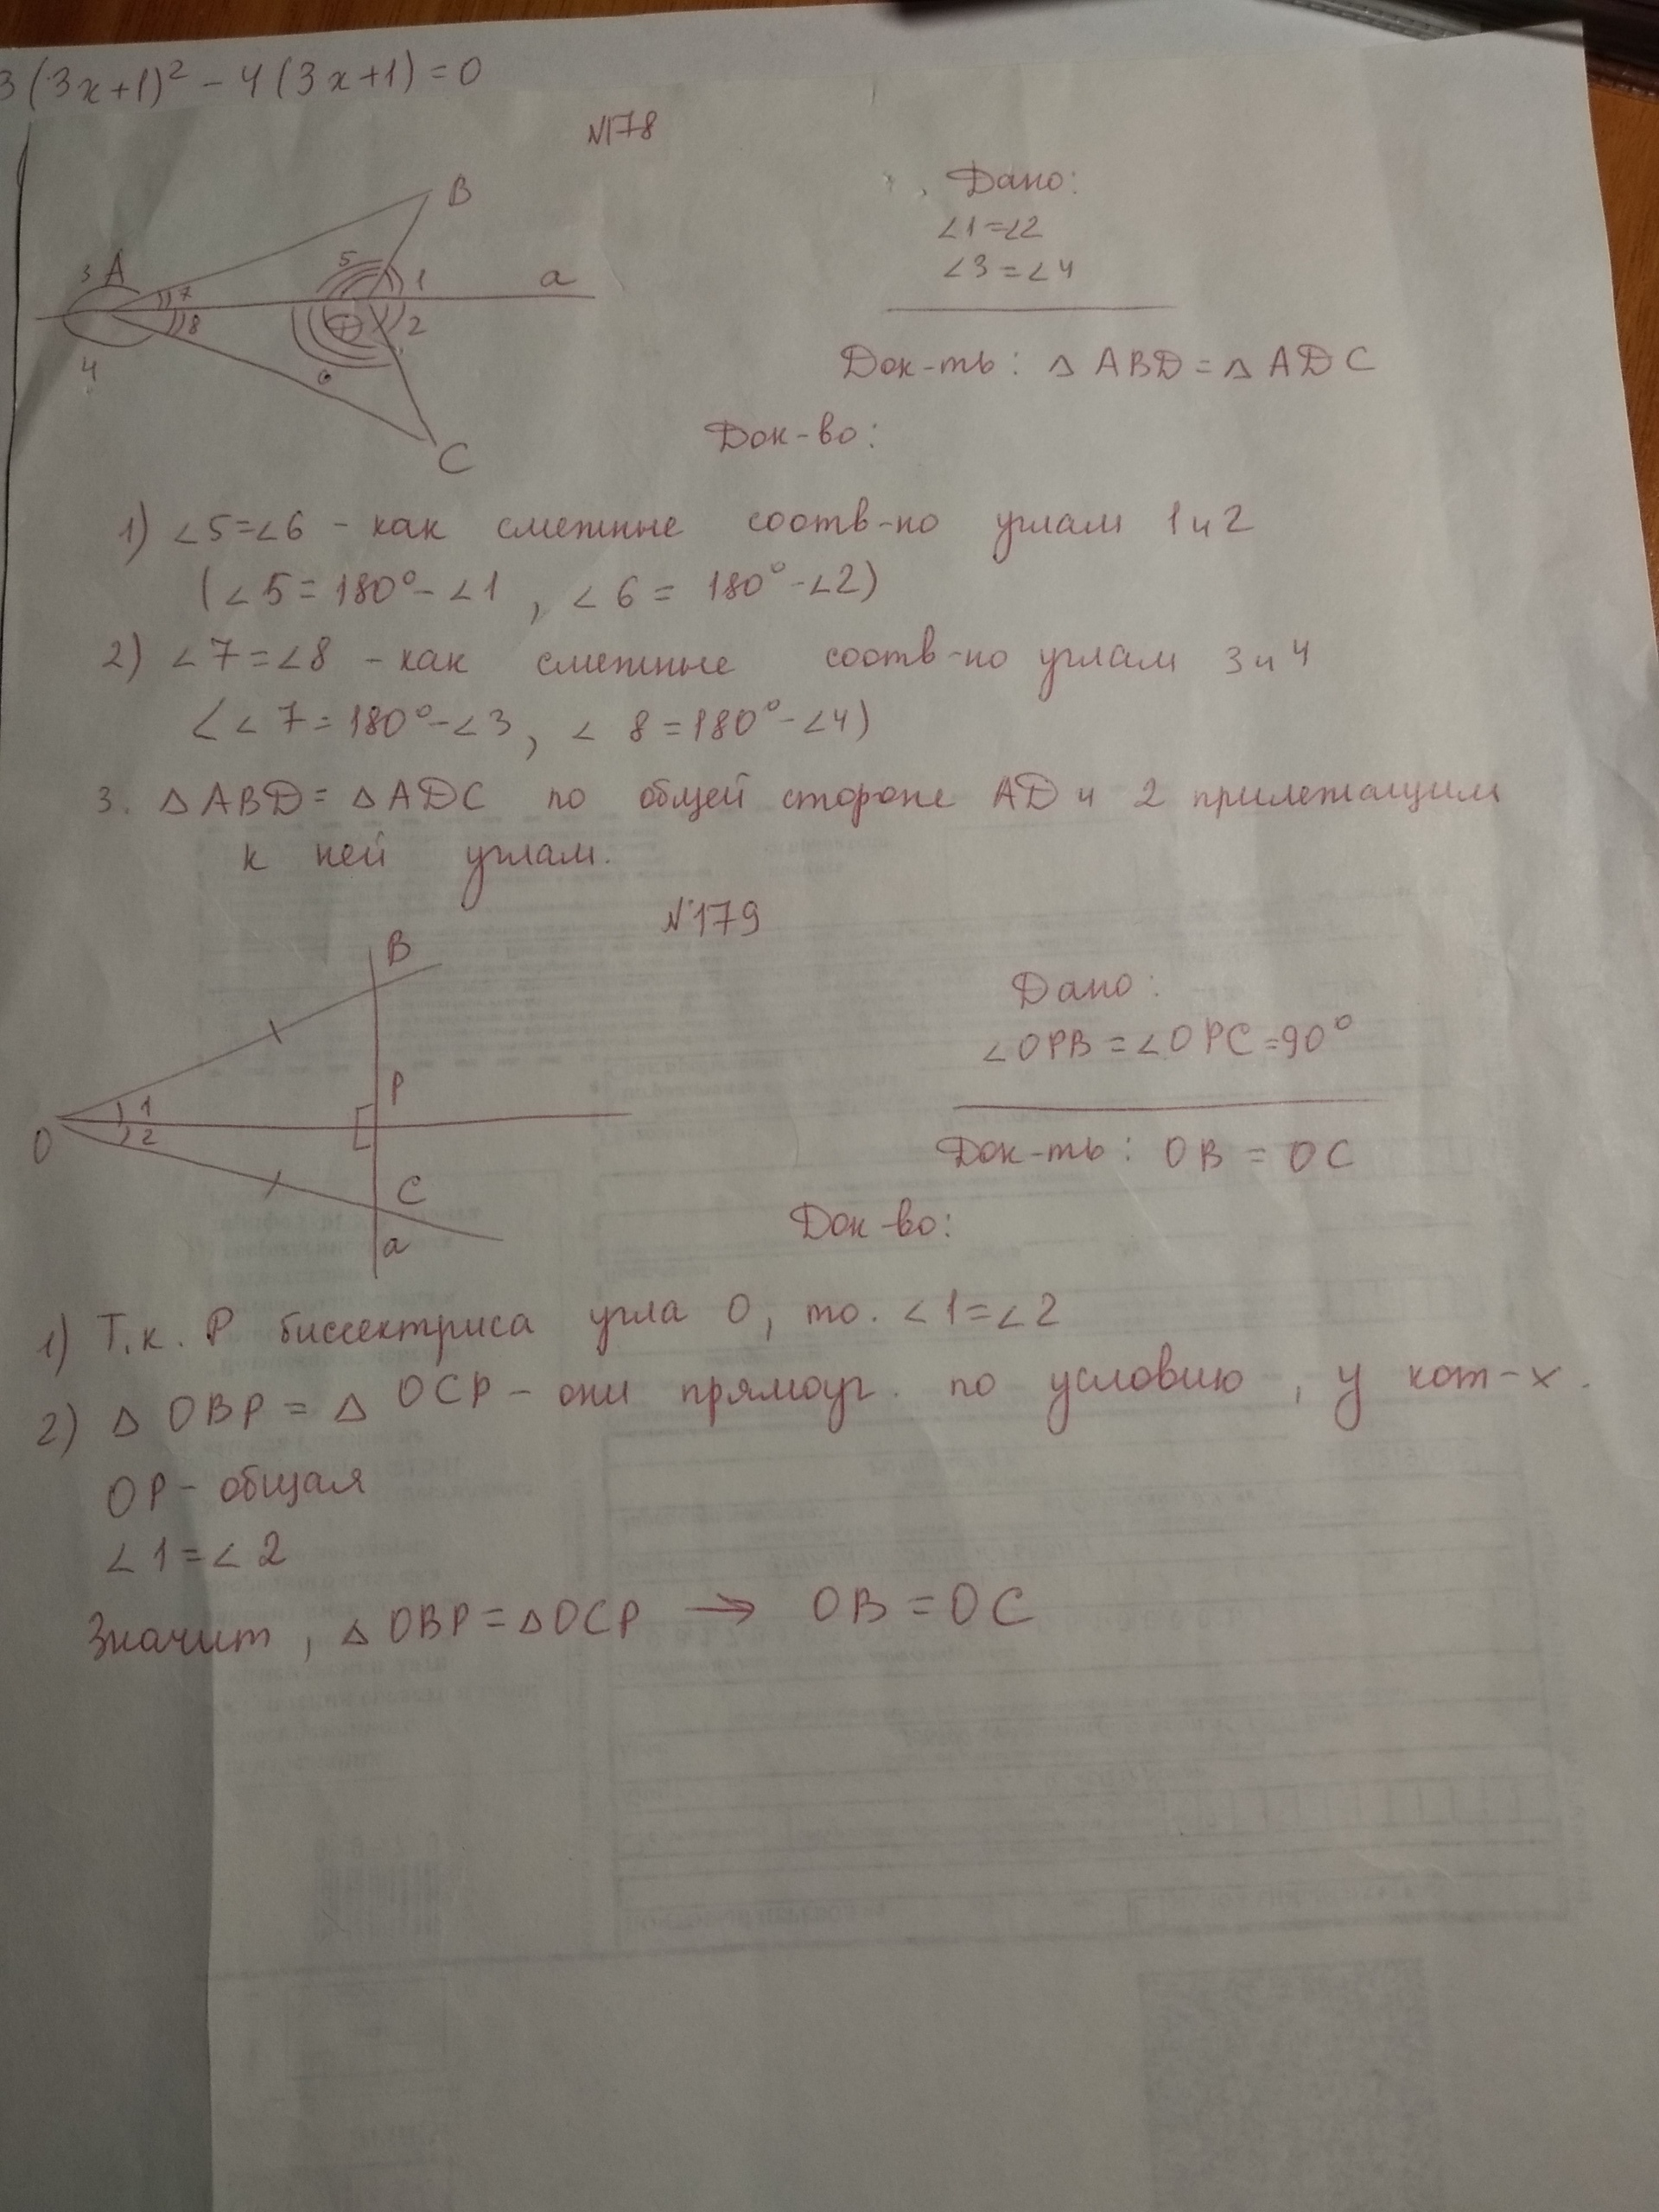 3(3x+1)² - 4(3x+1) = 0
N178
B
Дано:
∠1=∠2
3 A 5
7 1 a
∠3=∠4
8 2
4
Док-ть: △ ABD = △ ADC
C
Док-во:
1) ∠5=∠6 - как смежные соотв-но углам 1 и 2
(∠5 = 180° - ∠1, ∠6 = 180° - ∠2)
2) ∠7=∠8 - как смежные соотв-но углам 3 и 4
(∠7 = 180° - ∠3, ∠8 = 180° - ∠4)
3. △ ABD = △ ADC по общей стороне AD и 2 прилежащим
к ней углам.
N179
B
Дано:
∠OPB = ∠OPC = 90°
P
1
O 2
Док-ть: OB = OC
C
a
Док-во:
1) Т.к. P биссектриса угла O, то. ∠1=∠2
2) △ OBP = △ OCP - они прямоуг. по условию, у кот-х.
OP - общая
∠1=∠2
Значит, △OBP = △OCP → OB = OC